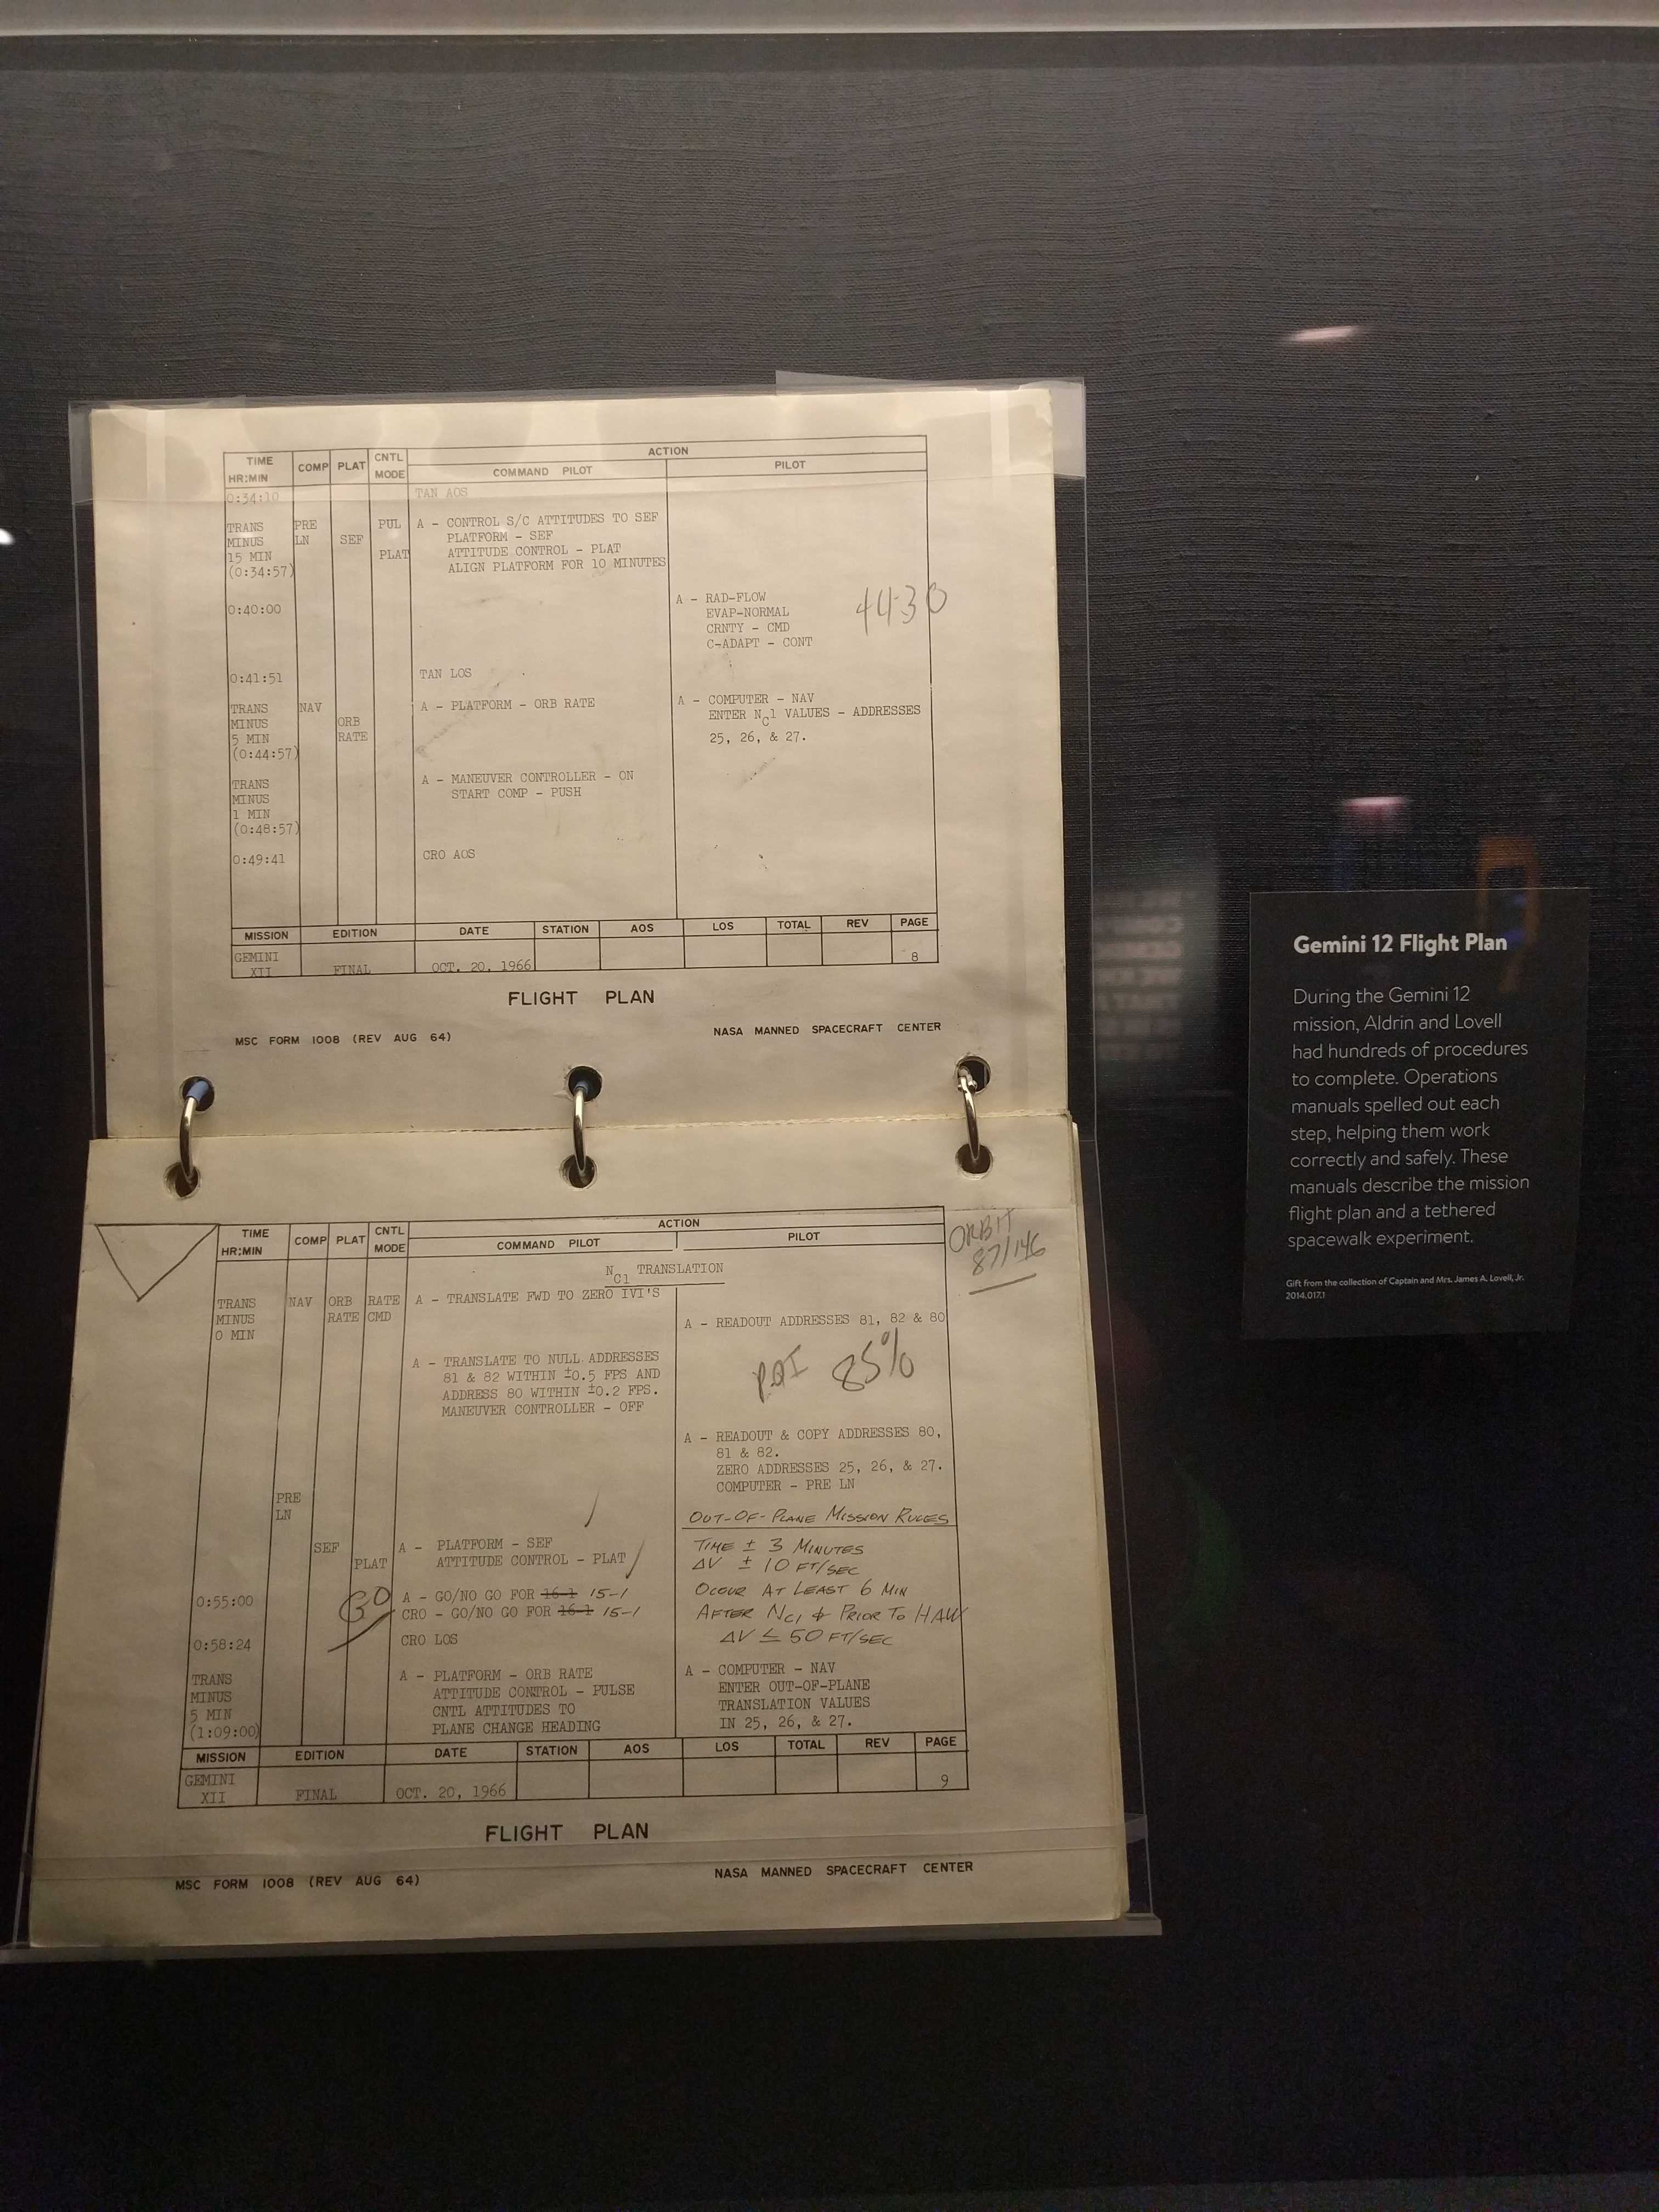 TIME
HR:MIN
COMP
PLAT
CNTL
MODE
ACTION
COMMAND PILOT
PILOT
0:34:10
TAN AOS
TRANS
MINUS
15 MIN
(0:34:57)
PRE
LN
SEF
PUL
PLAT
A - CONTROL S/C ATTITUDES TO SEF
PLATFORM - SEF
ATTITUDE CONTROL - PLAT
ALIGN PLATFORM FOR 10 MINUTES
0:40:00
A - RAD-FLOW
EVAP-NORMAL
CRNTY - CMD
C-ADAPT - CONT
4430
0:41:51
TAN LOS
TRANS
MINUS
5 MIN
(0:44:57)
NAV
ORB
RATE
A - PLATFORM - ORB RATE
A - COMPUTER - NAV
ENTER NC1 VALUES - ADDRESSES
25, 26, & 27.
TRANS
MINUS
1 MIN
(0:48:57)
A - MANEUVER CONTROLLER - ON
START COMP - PUSH
0:49:41
CRO AOS
MISSION
EDITION
DATE
STATION
AOS
LOS
TOTAL
REV
PAGE
GEMINI
XII
FINAL
OCT. 20, 1966
8
FLIGHT PLAN
MSC FORM 1008 (REV AUG 64)
NASA MANNED SPACECRAFT CENTER
TIME
HR:MIN
COMP
PLAT
CNTL
MODE
ACTION
COMMAND PILOT
PILOT
ORBIT
87/146
NC1 TRANSLATION
TRANS
MINUS
0 MIN
NAV
ORB
RATE
RATE
CMD
A - TRANSLATE FWD TO ZERO IVI'S
A - READOUT ADDRESSES 81, 82 & 80
A - TRANSLATE TO NULL ADDRESSES
81 & 82 WITHIN ±0.5 FPS AND
ADDRESS 80 WITHIN ±0.2 FPS.
MANEUVER CONTROLLER - OFF
85%
A - READOUT & COPY ADDRESSES 80,
81 & 82.
ZERO ADDRESSES 25, 26, & 27.
COMPUTER - PRE LN
PRE
LN
OUT-OF-PLANE MISSION RULES
SEF
PLAT
A - PLATFORM - SEF
ATTITUDE CONTROL - PLAT
TIME ± 3 MINUTES
ΔV ± 10 FT/SEC
OCCUR AT LEAST 6 MIN
AFTER NC1 & PRIOR TO HAW
ΔV ≤ 50 FT/SEC
0:55:00
GO
A - GO/NO GO FOR 16-1 15-1
CRO - GO/NO GO FOR 16-1 15-1
0:58:24
CRO LOS
TRANS
MINUS
5 MIN
(1:09:00)
A - PLATFORM - ORB RATE
ATTITUDE CONTROL - PULSE
CNTL ATTITUDES TO
PLANE CHANGE HEADING
A - COMPUTER - NAV
ENTER OUT-OF-PLANE
TRANSLATION VALUES
IN 25, 26, & 27.
MISSION
EDITION
DATE
STATION
AOS
LOS
TOTAL
REV
PAGE
GEMINI
XII
FINAL
OCT. 20, 1966
9
FLIGHT PLAN
MSC FORM 1008 (REV AUG 64)
NASA MANNED SPACECRAFT CENTER
Gemini 12 Flight Plan
During the Gemini 12
mission, Aldrin and Lovell
had hundreds of procedures
to complete. Operations
manuals spelled out each
step, helping them work
correctly and safely. These
manuals describe the mission
flight plan and a tethered
spacewalk experiment.
Gift from the collection of Captain and Mrs. James A. Lovell, Jr.
2014.017.1